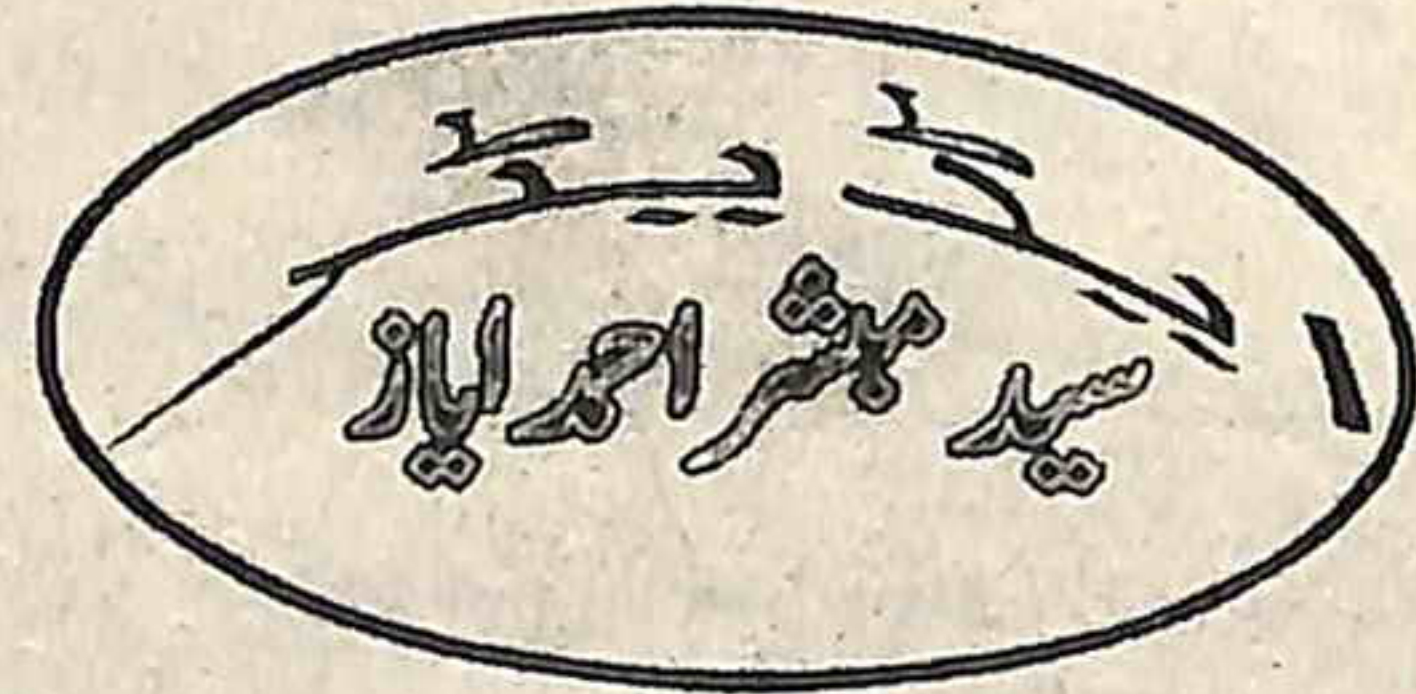 ایڈیٹر
سید مبشر احمد ایاز